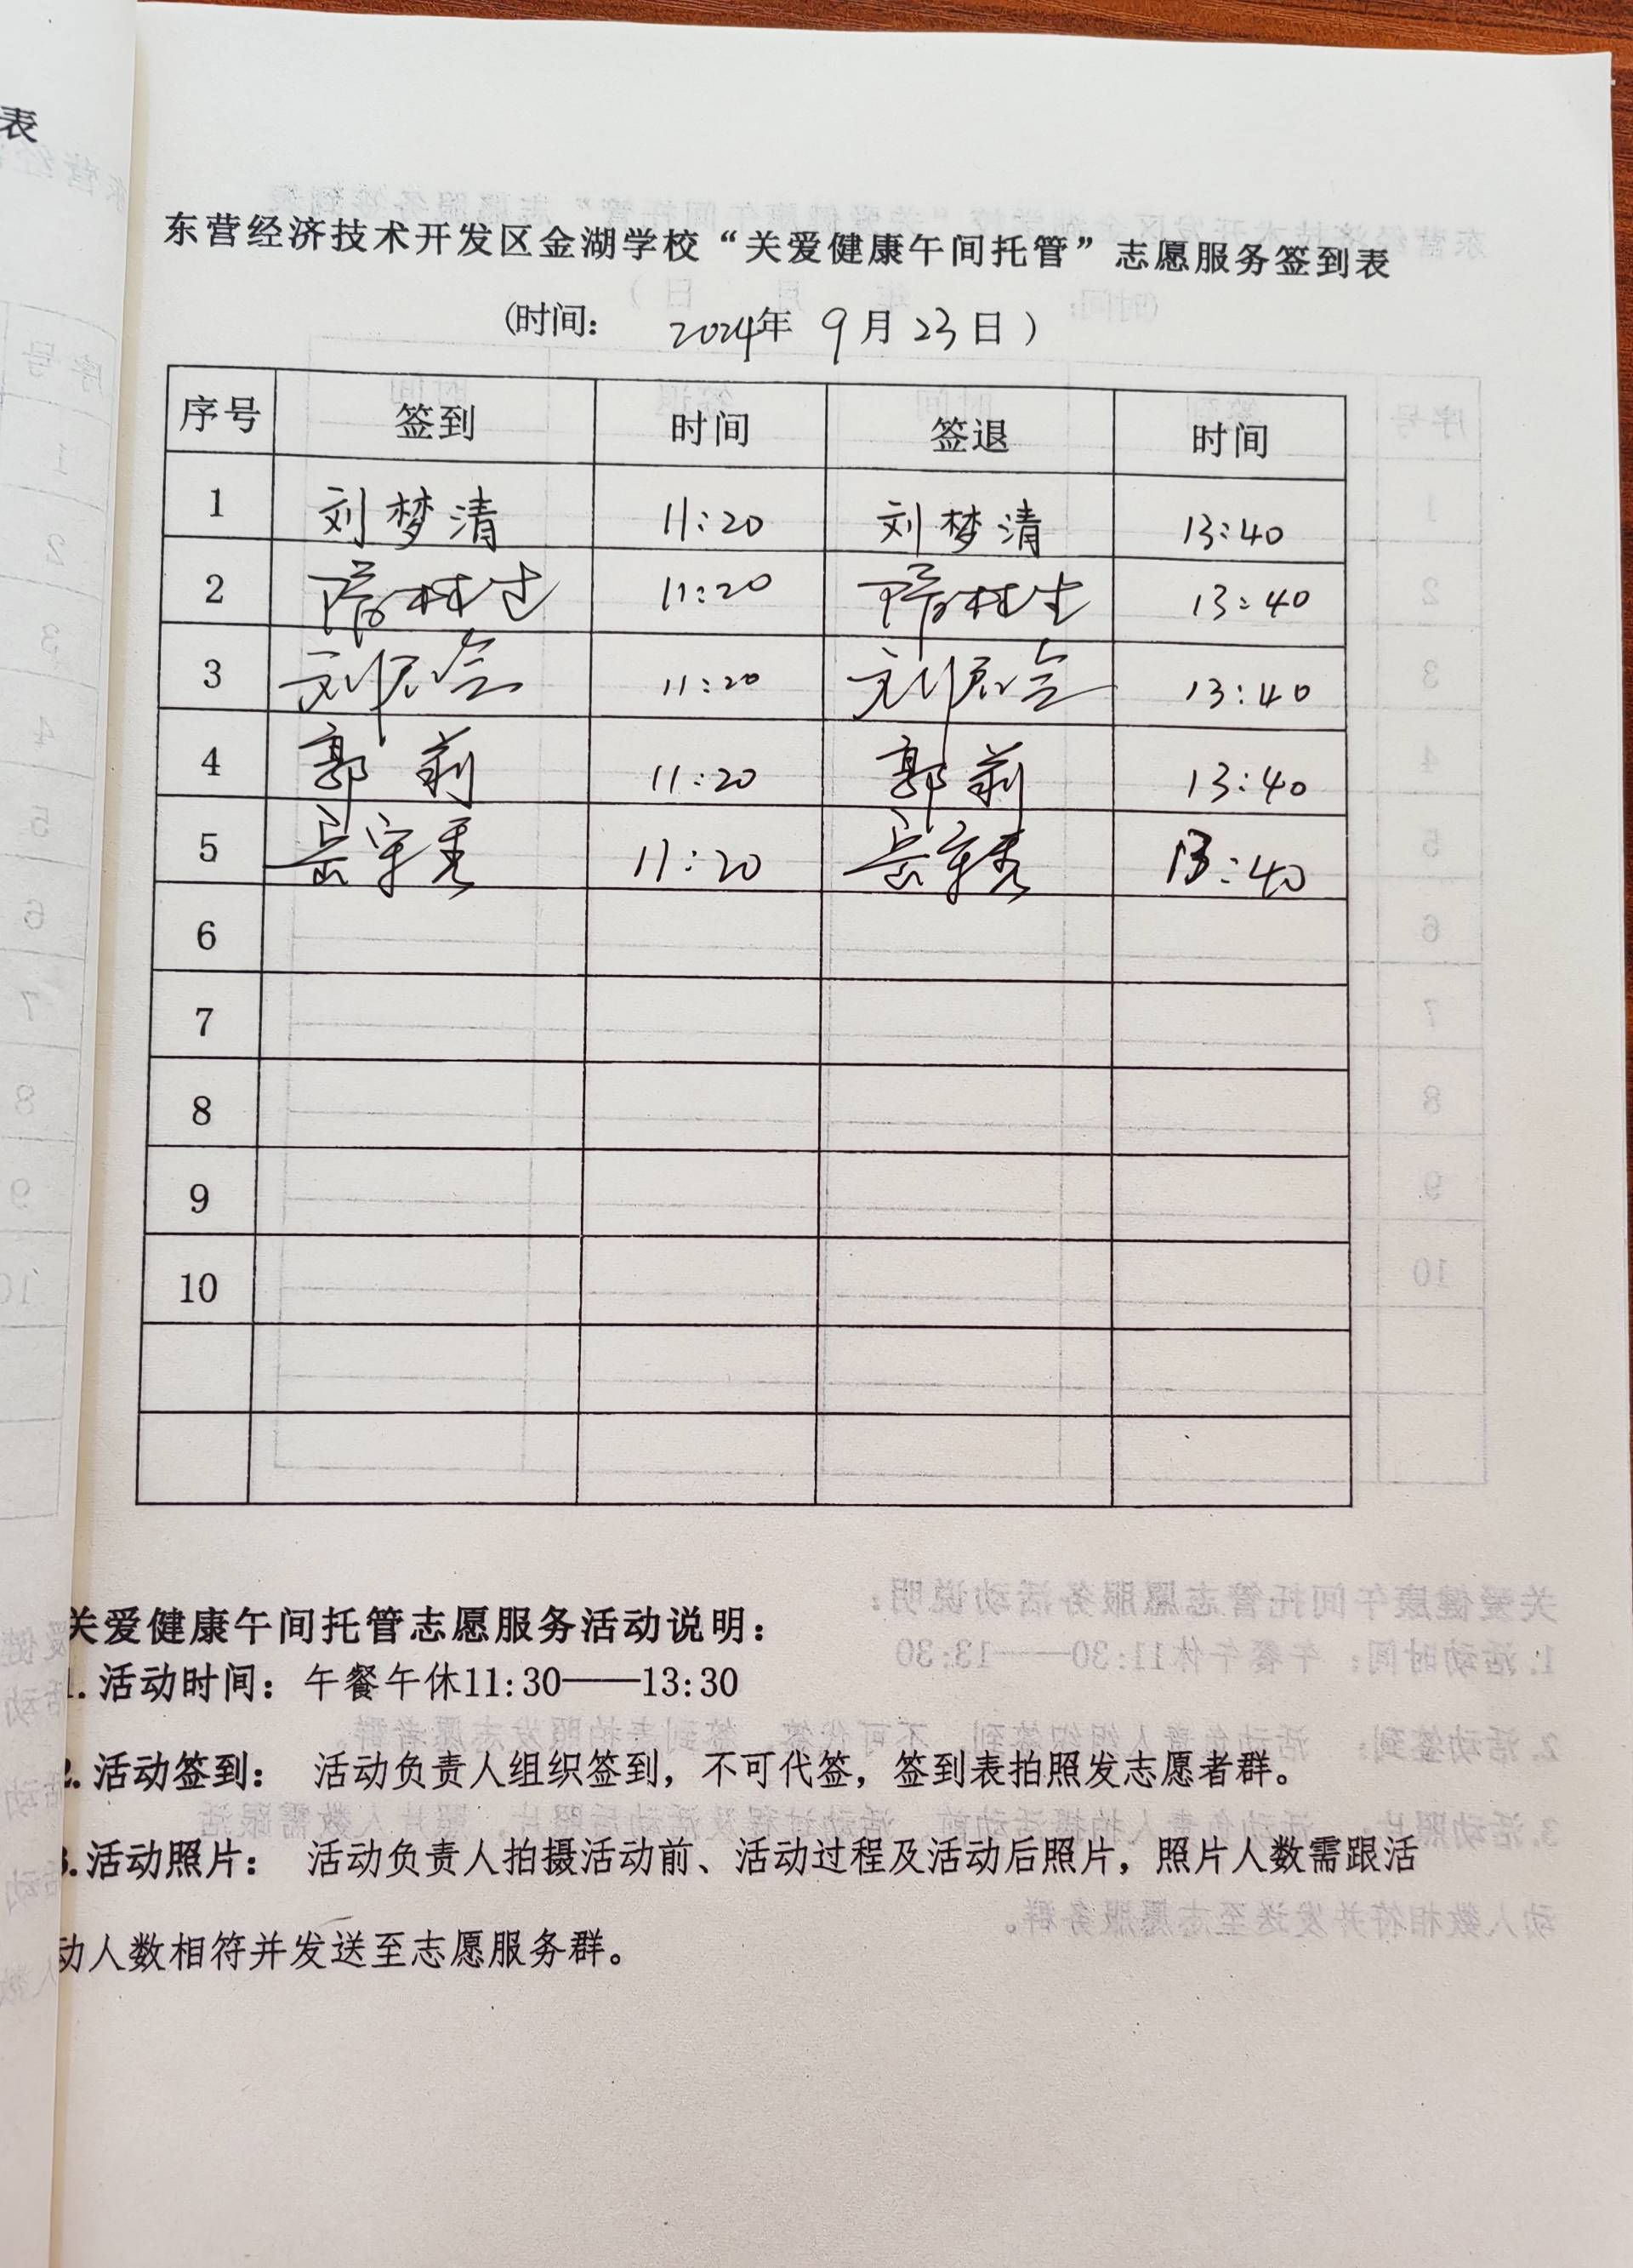 东营经济技术开发区金湖学校“关爱健康午间托管”志愿服务签到表
(时间: 2024年 9月23日)
序号 签到 时间 签退 时间
1 刘梦清 11:20 刘梦清 13:40
2 11:20 13:40
3 11:20 13:40
4 郭莉 11:20 郭莉 13:40
5 11:20 13:40
6
7
8
9
10
关爱健康午间托管志愿服务活动说明：
1.活动时间：午餐午休11:30——13:30
2.活动签到： 活动负责人组织签到，不可代签，签到表拍照发志愿者群。
3.活动照片： 活动负责人拍摄活动前、活动过程及活动后照片，照片人数需跟活
动人数相符并发送至志愿服务群。